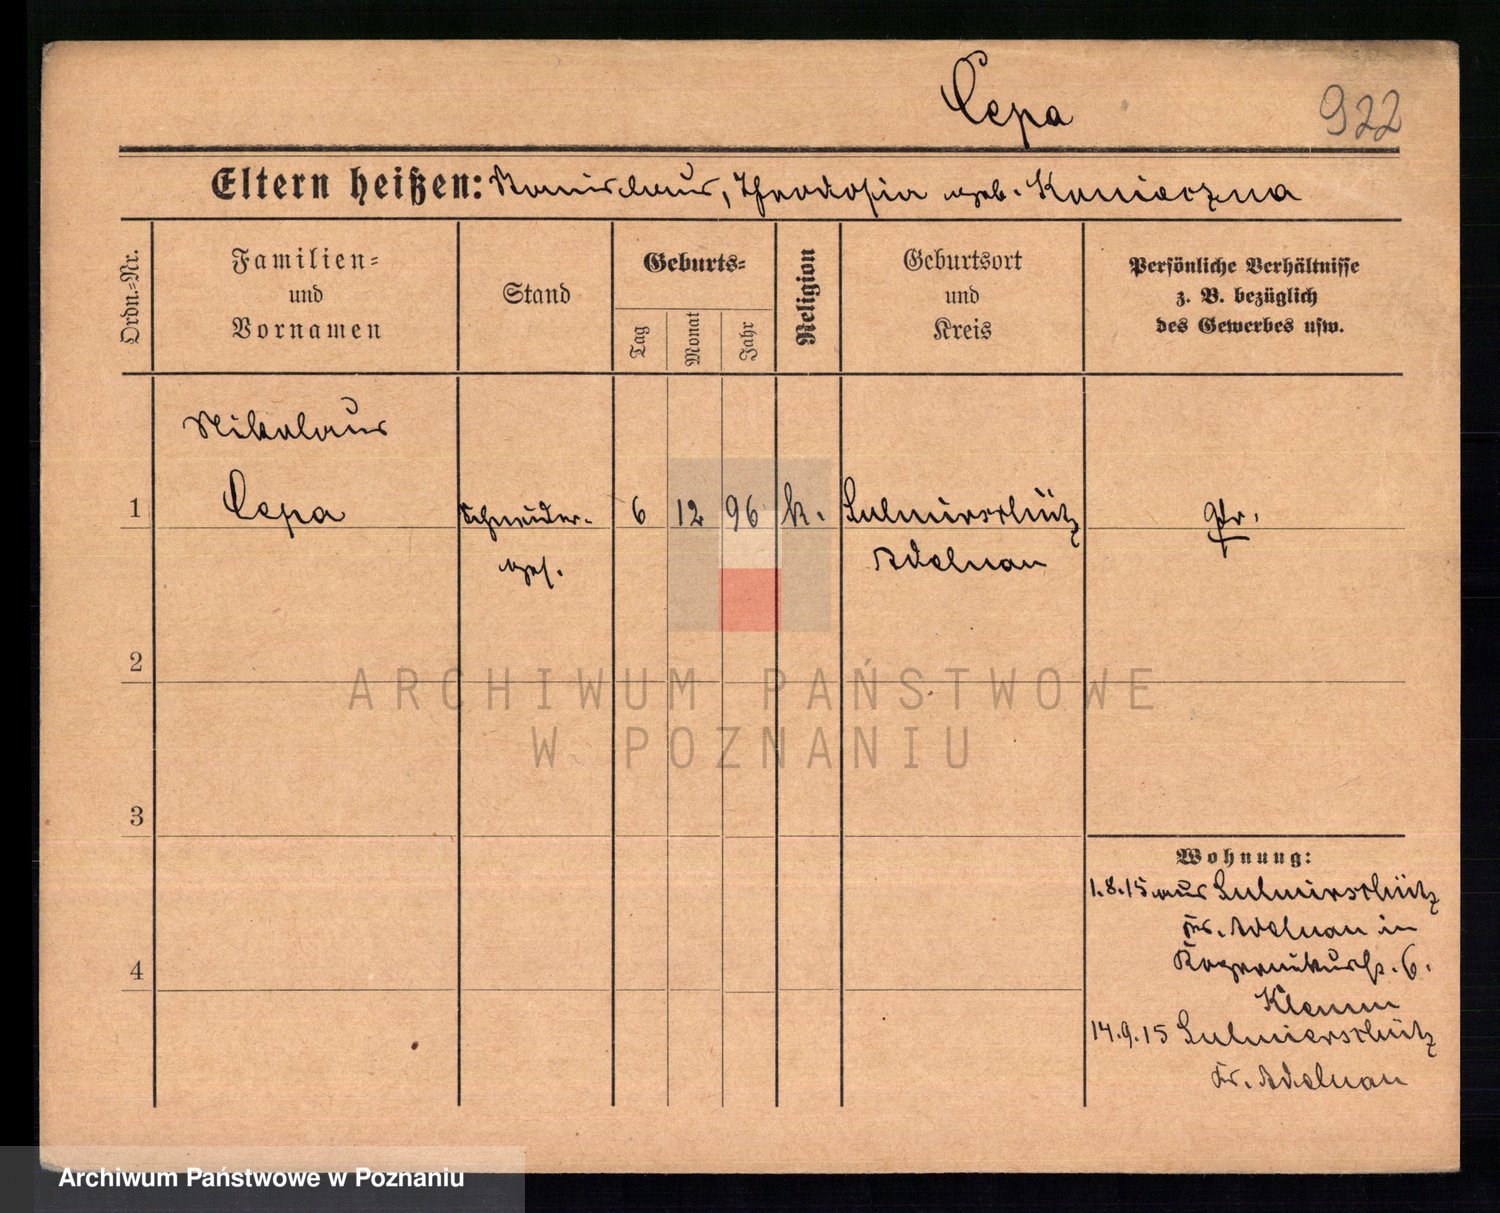 Cepa
922
Eltern heißen: Stanislaus, Theodosia geb. Konieczna
Ordn.-Nr.
Familien-
und
Vornamen
Stand
Geburts-
Tag
Monat
Jahr
Religion
Geburtsort
und
Kreis
Persönliche Verhältnisse
z. B. bezüglich
des Gewerbes usw.
Nikolaus
1 Cepa Schneider- 6 12 96 k. Sulmirschütz Pr.
ges. Adelnau
2
ARCHIWUM PAŃSTWOWE
W POZNANIU
3
Wohnung:
1.8.15 aus Sulmirschütz
Kr. Adelnau in
4 6.
Klemm
14.9.15 Sulmierschütz
Kr. Adelnau
Archiwum Państwowe w Poznaniu